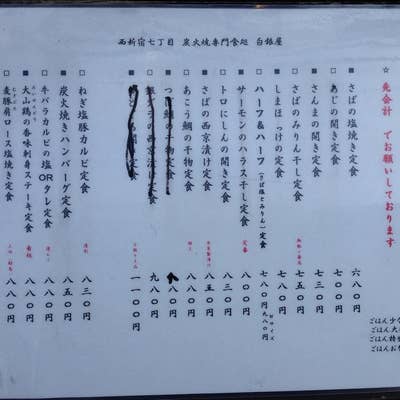 西新宿七丁目 炭火焼専門食処 白銀屋
☆
先会計 でお願いしております
□ さばの塩焼き定食 六八〇円
□ あじの開き定食 七〇〇円
□ さんまの開き定食 七三〇円
■ さばのみりん干し定食 七五〇円
□ しまほっけの開き定食 七八〇円
□ ハーフ&ハーフ(さば塩とみりん)定食 七八〇円 Wサイズ 九八〇円
■ サーモンのハラス干し定食 定番 八〇〇円
□ トロにしんの開き定食 八三〇円
■ さばの西京漬け定食 八五〇円
□ あこう鯛の干物定食 八八〇円
の干物定食
の西京漬し定食 九八〇円
一一〇〇円
□ ねぎ塩豚カルビ定食 八三〇円
■ 炭火焼きハンバーグ定食 八五〇円
□ 牛バラカルビの塩ORタレ定食 八八〇円
■ 大山鶏の香味刺身ステーキ定食 八八〇円
□ 麦豚肩ロース塩焼き定食 八八〇円
ごはん少
ごはん大
ごはん特
ごはんお